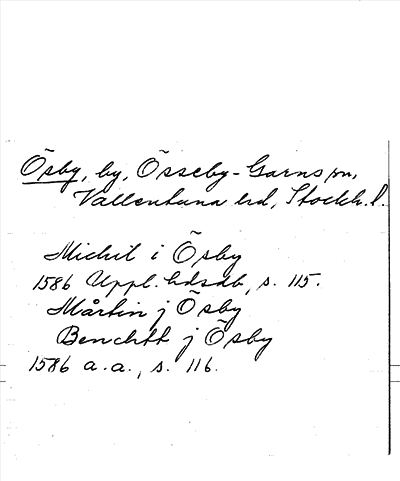 Ösby, by, Össeby-Garns sn,
Vallentuna hd, Stockh. l.
Michil i Ösby
1586 Uppl. hdsdb, s. 115.
Mårtin j Ösby
Benchtt j Ösby
1586 a.a., s. 116.